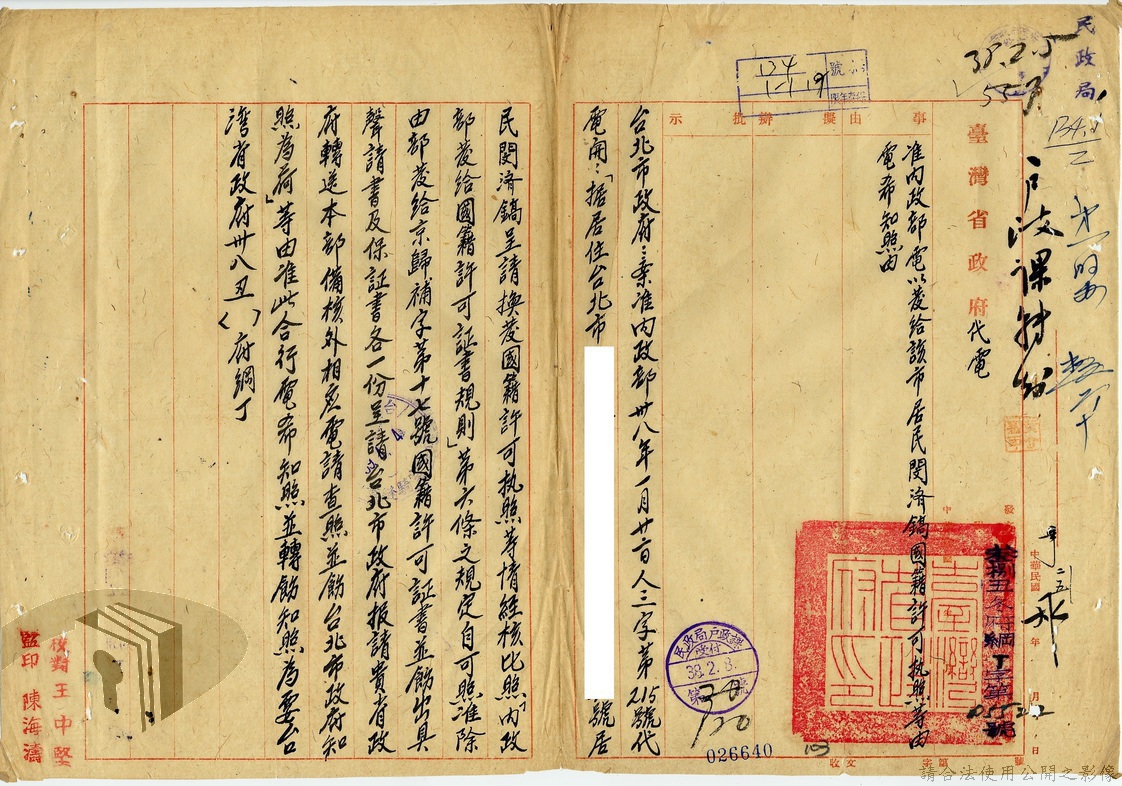 民政局
38.2.5
戶政課
臺灣省政府代電
事由
擬辦
批示
准內政部電以發給該市居民閔濟鎬國籍許可执照等由
電希知照由
台北市政府：案准內政部卅八年一月廿二日人三字第215號代
電開：「据居住台北市
號居
民閔濟鎬呈請換發國籍許可执照等情經核比照「內政
部發給國籍許可証書規則」第六條之規定自可照准除
由部發給京歸補字第十七號國籍許可証書並飭出具
聲請書及保証書各一份呈請台北市政府报請貴省政
府轉送本部備核外相应電請查照並飭台北市政府知
照為荷」等由准此合行電希知照並轉飭知照為要台
灣省政府卅八丑（ ）府綱丁
中華民國
年
月
日
05522
號
臺灣省政府印
民政局戶政課
收付
38.2.8.
第
號
026640
收文
字第
號
校對 王中堅
監印 陳海濤
請合法使用公開之影像